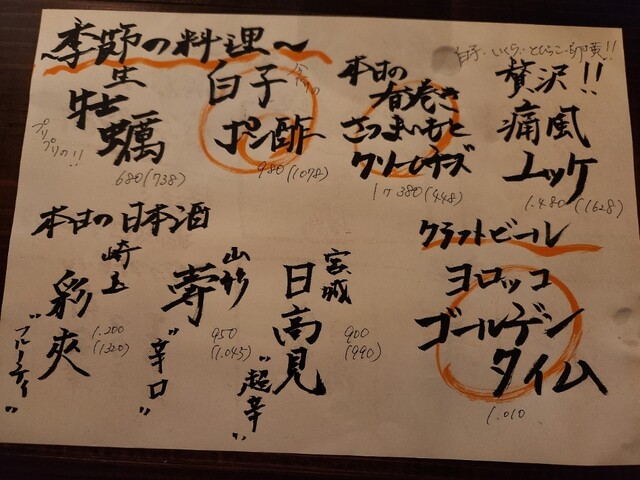 季節の料理〜
生
牡
蠣
プリ
プリの!!
680(738)
白子
ポン酢
980(1078)
本日の
春巻き
さつまいもと
クリームチーズ
1ヶ380(448)
白子・いくら・とびっこ・卵黄!!
贅沢!!
痛風
ユッケ
1.480(1628)
本日の日本酒
埼玉
彩爽
"フルーティ"
1.200
(1320)
寿
"辛口"
950
(1.045)
宮城
日高見
"超辛"
900
(990)
クラフトビール
ヨロッコ
ゴールデン
タイム
1.010